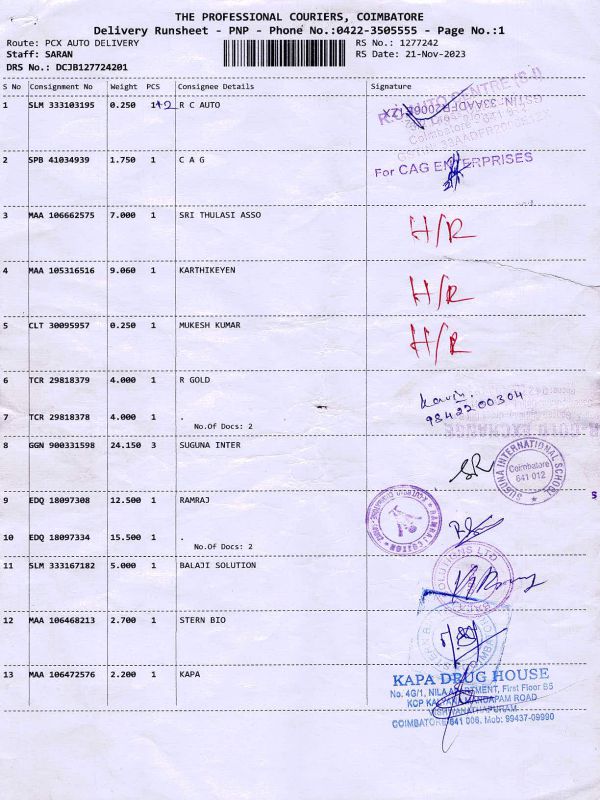 THE PROFESSIONAL COURIERS, COIMBATORE
Delivery Runsheet - PNP - Phone No.:0422-3505555 - Page No.:1
Route: PCX AUTO DELIVERY RS No.: 1277242
Staff: SARAN RS Date: 21-Nov-2023
DRS No.: DCJB127724201
S No Consignment No Weight PCS Consignee Details Signature
1 SLM 333103195 0.250 1+2 R C AUTO
2 SPB 41034939 1.750 1 C A G
For CAG ENTERPRISES
3 MAA 106662575 7.000 1 SRI THULASI ASSO H/R
4 MAA 105316516 9.060 1 KARTHIKEYEN H/R
5 CLT 30095957 0.250 1 MUKESH KUMAR H/R
6 TCR 29818379 4.000 1 R GOLD
9842200304
7 TCR 29818378 4.000 1
No.Of Docs: 2
8 GGN 900331598 24.150 3 SUGUNA INTER SR
SUGUNA INTERNATIONAL SCHOOL
Coimbatore
641 012
9 EDQ 18097308 12.500 1 RAMRAJ
RAMRAJ COTTON
10 EDQ 18097334 15.500 1 .
No.Of Docs: 2
11 SLM 333167182 5.000 1 BALAJI SOLUTION
12 MAA 106468213 2.700 1 STERN BIO
13 MAA 106472576 2.200 1 KAPA
KAPA DRUG HOUSE
No. 4G/1, NILA APARTMENT, First Floor B5
MANDAPAM ROAD
COIMBATORE 641 006. Mob: 99437-09990